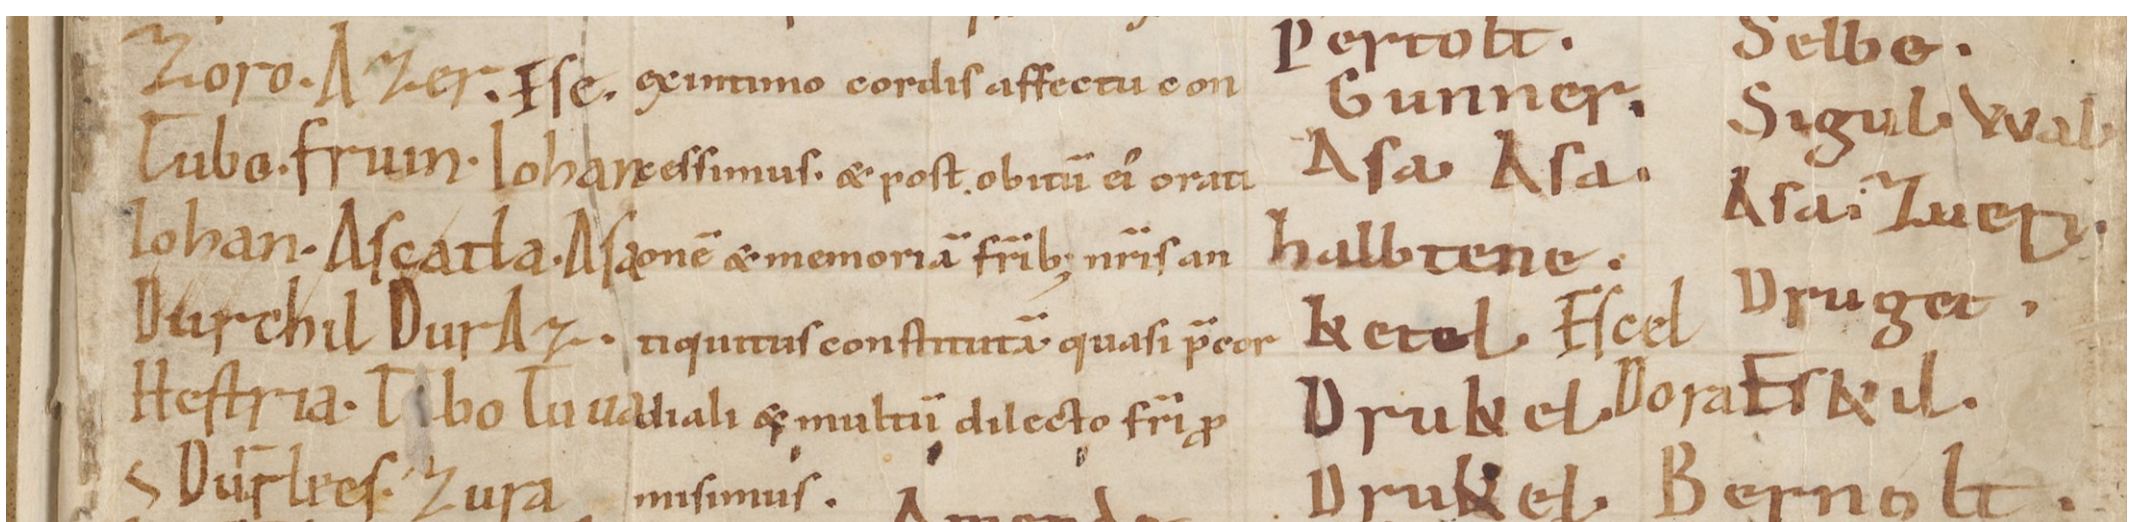 Zoro. Azer. Esc.
Tubo. fruin. Iohan
Iohan. Ascatla. Asa
Durchil Dur Az.
Hestria. Tubo Tuua
Zura
ex intimo cordis affectu con
cessimus. & post obitū ei orati
onē & memoriā fr̄ib; nr̄is an
tiquitus constitutā quasi p̄cor
diali & multū dilecto fr̄i ꝓ
misimus.
Pertolt.
Gunner.
Asa. Asa.
halbtene.
Ketel. Escel
Drukel. Dora Eskil.
Drukel. Bernolt.
Selbo.
Sigul. Wal
Asa. Zuen.
Druget.